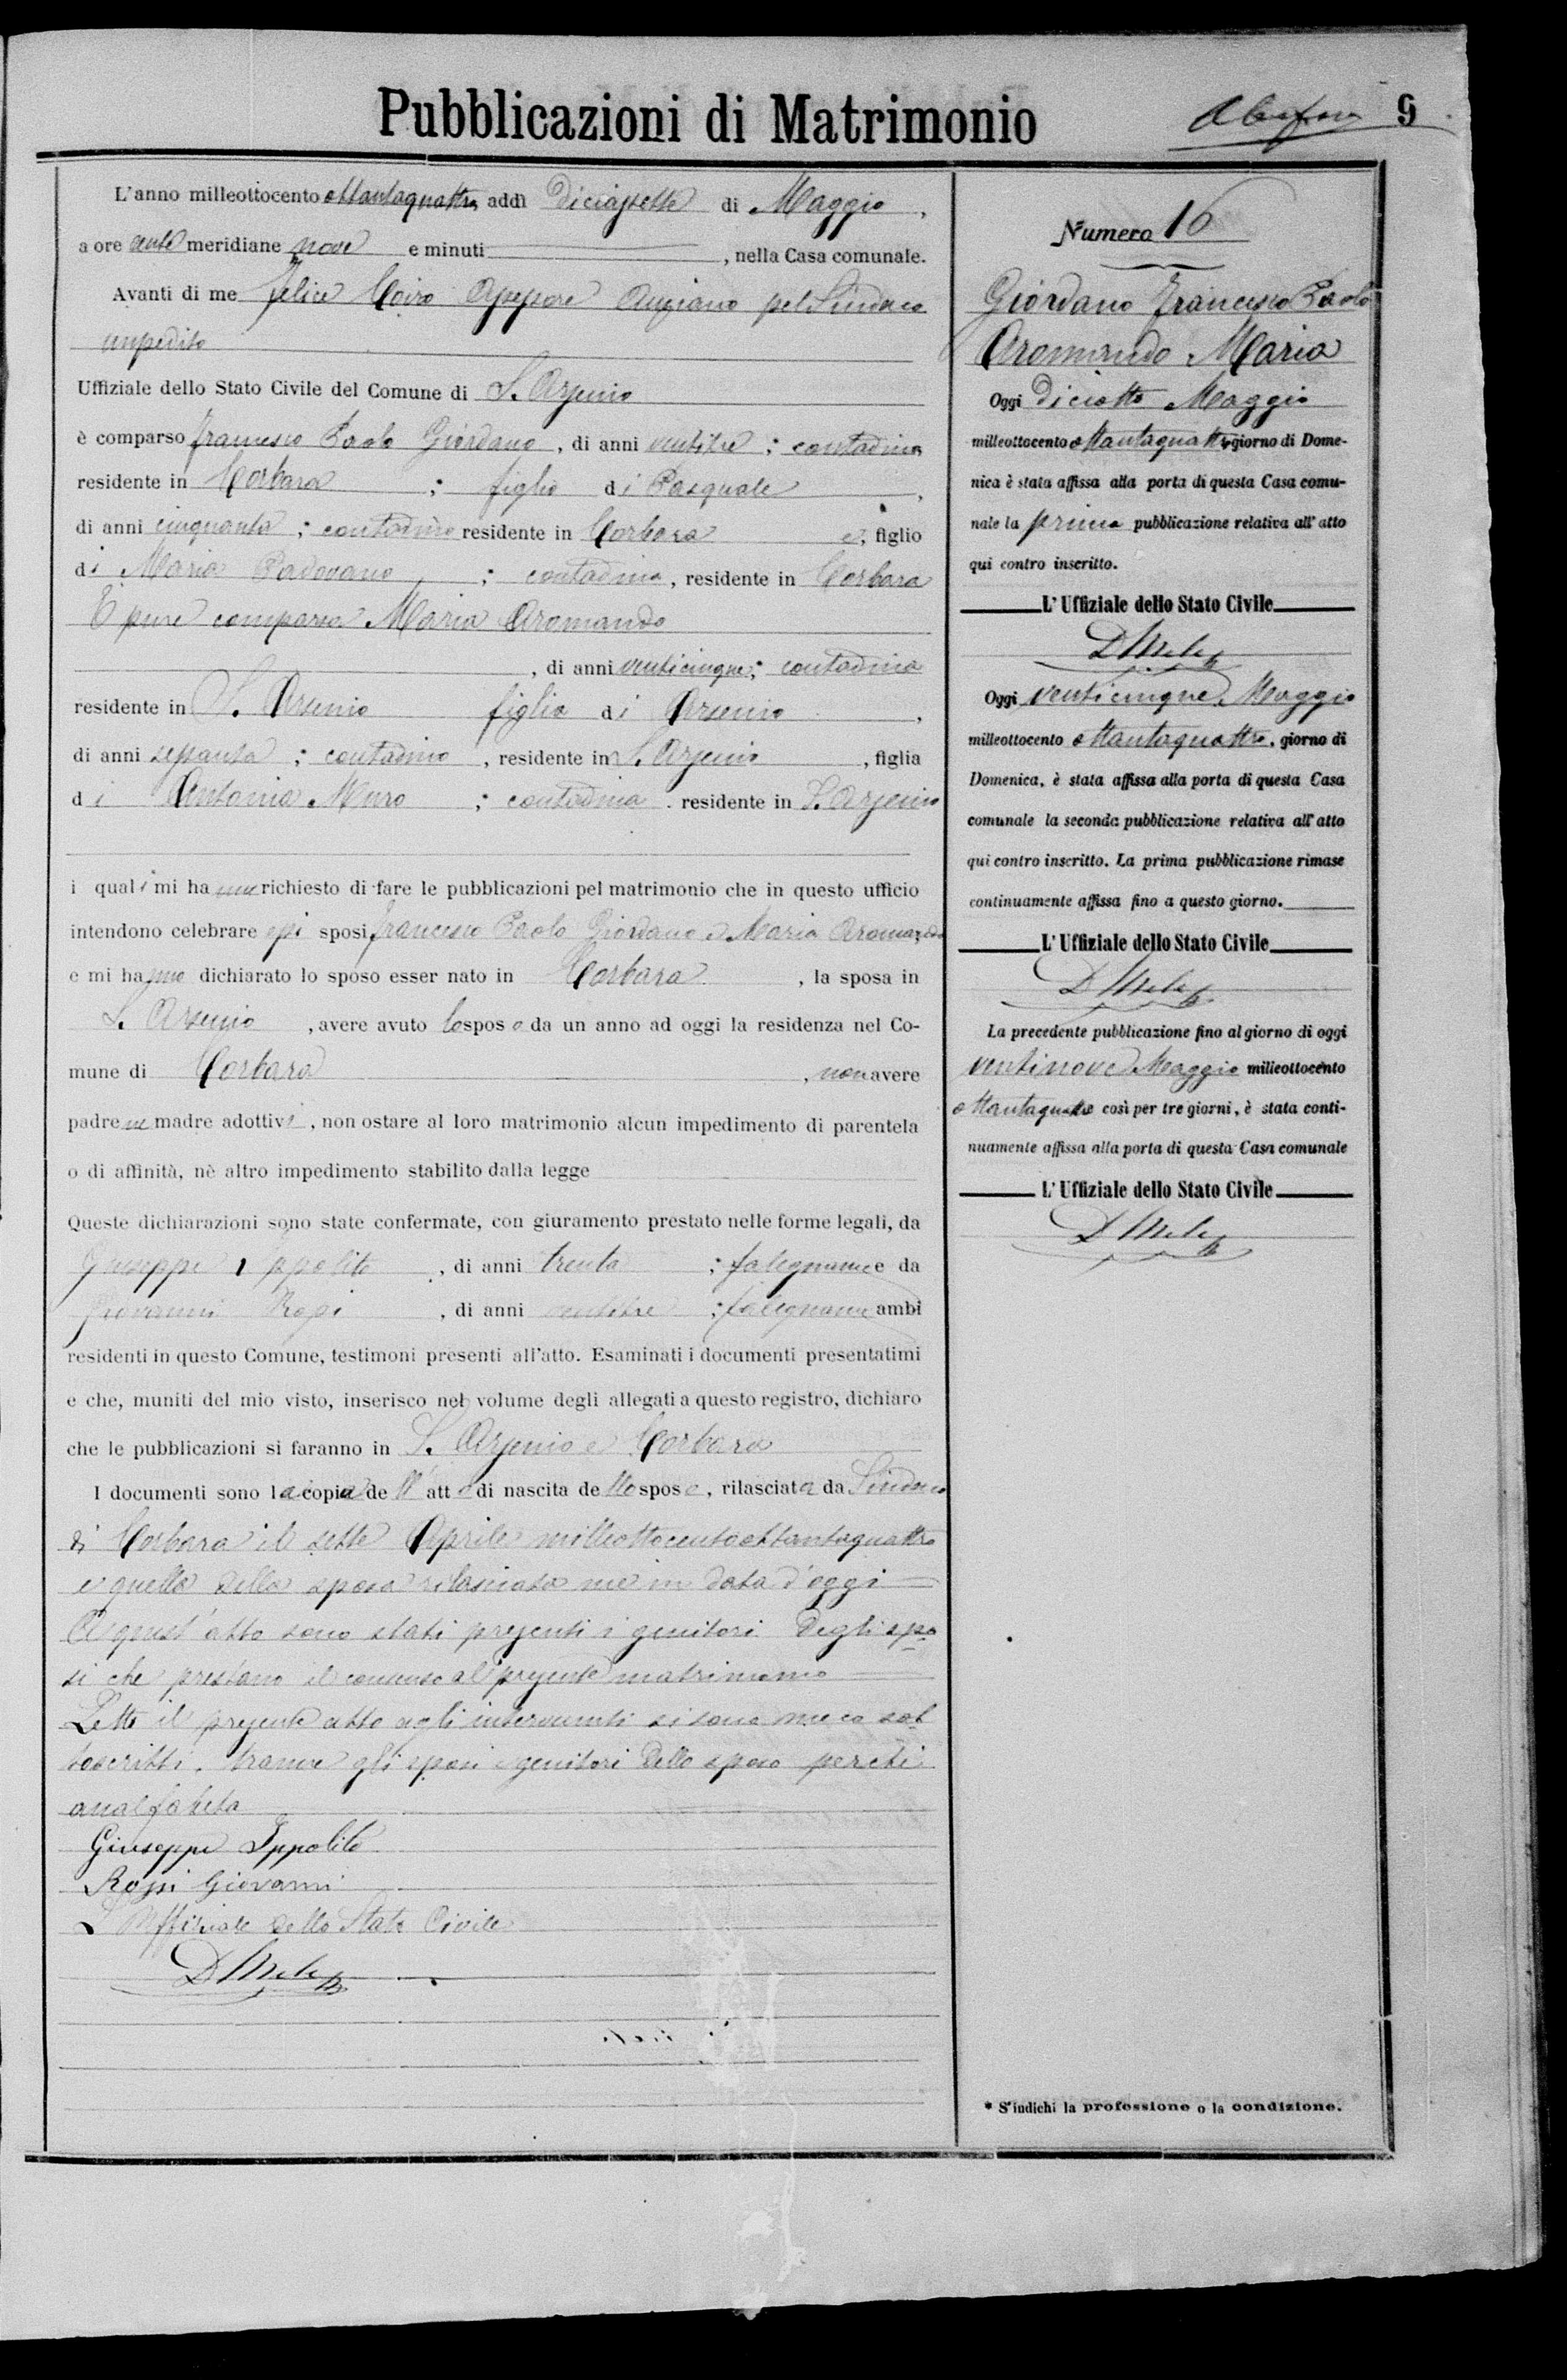 Pubblicazioni di Matrimonio
9
L'anno milleottocento ottantaquattro, addì Diciassette di Maggio,
a ore ante meridiane nove e minuti, nella Casa comunale.
Avanti di me Felice Coiro Assessore Anziano pel Sindaco
impedito
Uffiziale dello Stato Civile del Comune di S. Arsenio
è comparso Francesco Paolo Giordano, di anni ventitre; contadino
residente in Corbara; figlio di Pasquale,
di anni cinquanta; contadino residente in Corbara e, figlio
di Maria Padovano; contadina, residente in Corbara
È pure comparsa Maria Aromando
, di anni venticinque; contadina
residente in S. Arsenio figlia di Arsenio,
di anni sessanta; contadino, residente in S. Arsenio, figlia
di Antonia Muro; contadina. residente in S. Arsenio
i quali mi hanno richiesto di fare le pubblicazioni pel matrimonio che in questo ufficio
intendono celebrare essi sposi Francesco Paolo Giordano e Maria Aromando
e mi hanno dichiarato lo sposo esser nato in Corbara, la sposa in
S. Arsenio, avere avuto lo sposo da un anno ad oggi la residenza nel Co-
mune di Corbara, non avere
padre ne madre adottivi, non ostare al loro matrimonio alcun impedimento di parentela
o di affinità, nè altro impedimento stabilito dalla legge
Queste dichiarazioni sono state confermate, con giuramento prestato nelle forme legali, da
Giuseppe Ippolito, di anni trenta; falegname e da
Giovanni Rossi, di anni ventitre; falegname ambi
residenti in questo Comune, testimoni presenti all'atto. Esaminati i documenti presentatimi
e che, muniti del mio visto, inserisco nel volume degli allegati a questo registro, dichiaro
che le pubblicazioni si faranno in S. Arsenio e Corbara
I documenti sono la copia dell'atto di nascita dello sposo, rilasciata da Sindaco
di Corbara il sette Aprile milleottocentoottantaquattro
e quella della sposa rilasciata me in data d'oggi
A quest'atto sono stati presenti i genitori degli spo
si che prestano il consenso al presente matrimonio
Letto il presente atto agli intervenuti si sono meco sot
toscritti, tranne gli sposi e genitori dello sposo perchè
analfabeta
Giuseppe Ippolito
Rossi Giovanni
L'Uffiziale dello Stato Civile
D Mele
Numero 16
Giordano Francesco Paolo
Aromando Maria
Oggi Diciotto Maggio
milleottocento ottantaquattro giorno di Dome-
nica è stata affissa alla porta di questa Casa comu-
nale la prima pubblicazione relativa all'atto
qui contro inscritto.
L'Uffiziale dello Stato Civile
D Mele
Oggi venticinque Maggio
milleottocento ottantaquattro, giorno di
Domenica, è stata affissa alla porta di questa Casa
comunale la seconda pubblicazione relativa all'atto
qui contro inscritto. La prima pubblicazione rimase
continuamente affissa fino a questo giorno.
L'Uffiziale dello Stato Civile
D Mele
La precedente pubblicazione fino al giorno di oggi
ventinove Maggio milleottocento
ottantaquattro così per tre giorni, è stata conti-
nuamente affissa alla porta di questa Casa comunale
L'Uffiziale dello Stato Civile
D Mele
* S'indichi la professione o la condizione.